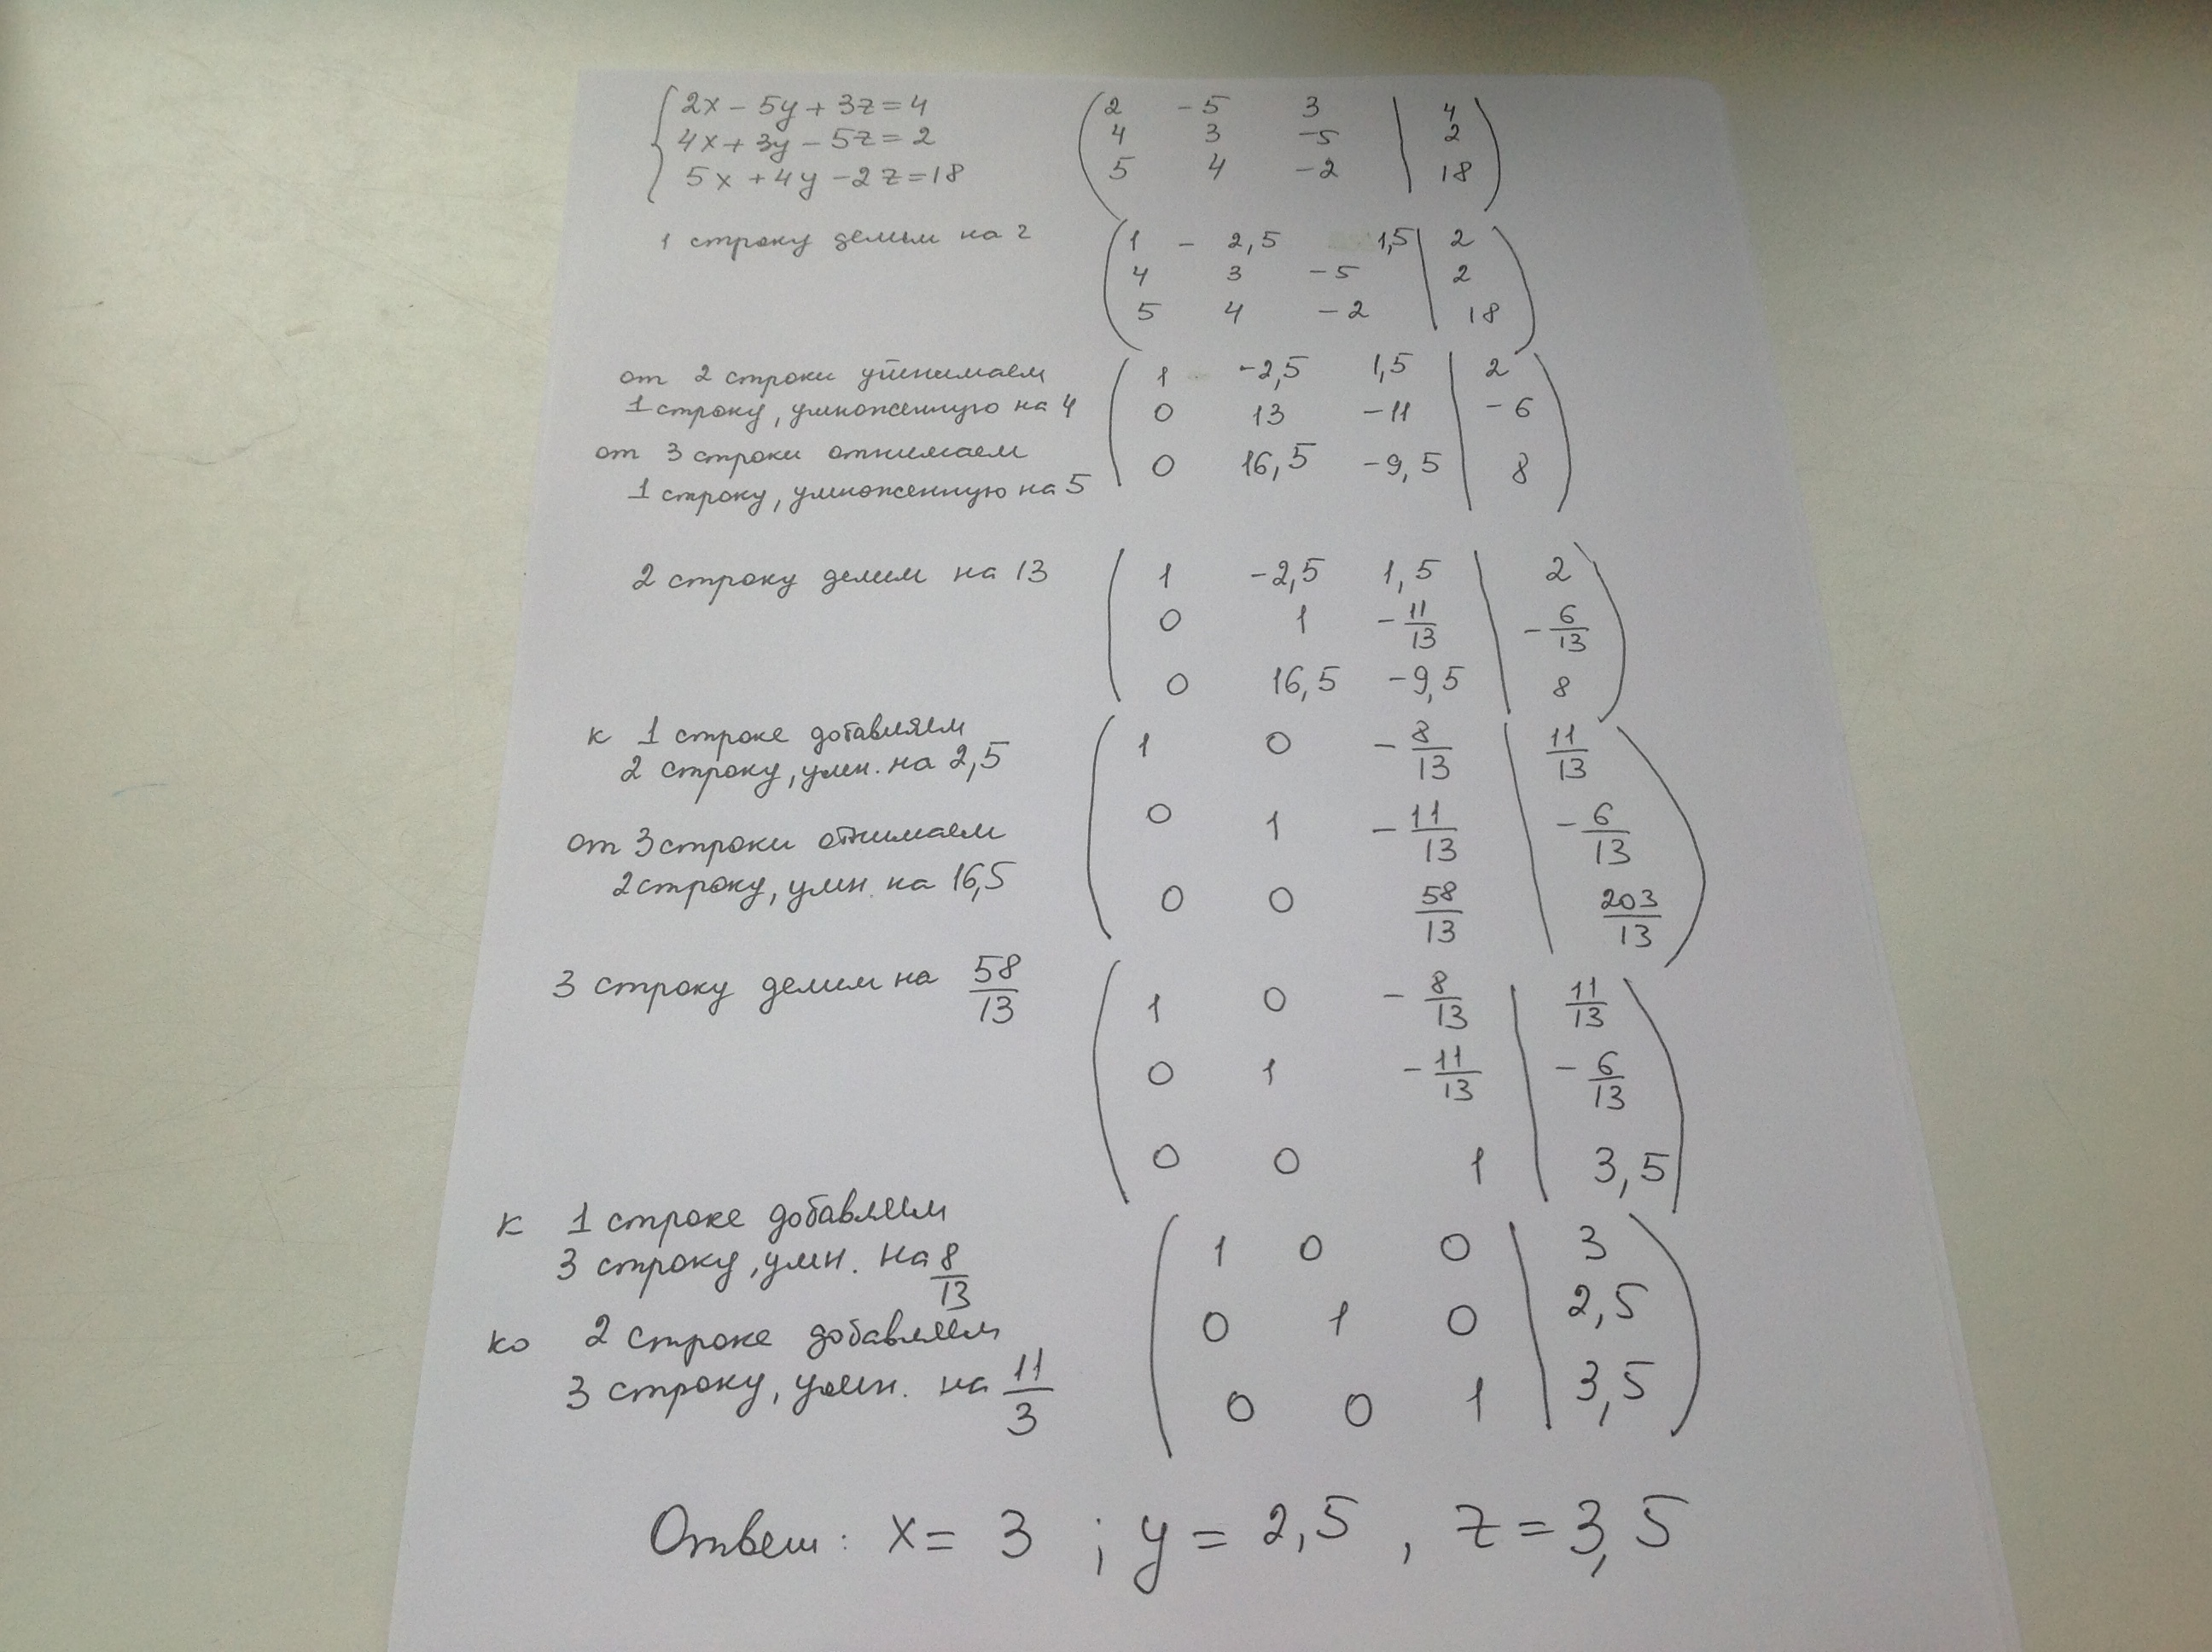 2x - 5y + 3z = 4
4x + 3y - 5z = 2
5x + 4y - 2z = 18
2 -5 3 | 4
4 3 -5 | 2
5 4 -2 | 18
1 строку делим на 2
1 - 2,5 1,5 | 2
4 3 -5 | 2
5 4 -2 | 18
от 2 строки
1 строку, умноженную на 4
от 3 строки отнимаем
1 строку, умноженную на 5
1 -2,5 1,5 | 2
0 13 -11 | -6
0 16,5 -9,5 | 8
2 строку делим на 13
1 -2,5 1,5 | 2
0 1 -11/13 | -6/13
0 16,5 -9,5 | 8
к 1 строке добавляем
2 строку, умн. на 2,5
от 3 строки отнимаем
2 строку, умн. на 16,5
1 0 -8/13 | 11/13
0 1 -11/13 | -6/13
0 0 58/13 | 203/13
3 строку делим на 58/13
1 0 -8/13 | 11/13
0 1 -11/13 | -6/13
0 0 1 | 3,5
к 1 строке добавляем
3 строку, умн. на 8/13
ко 2 строке добавляем
3 строку, умн. на 11/3
1 0 0 | 3
0 1 0 | 2,5
0 0 1 | 3,5
Ответ: x = 3 ; y = 2,5 , z = 3,5